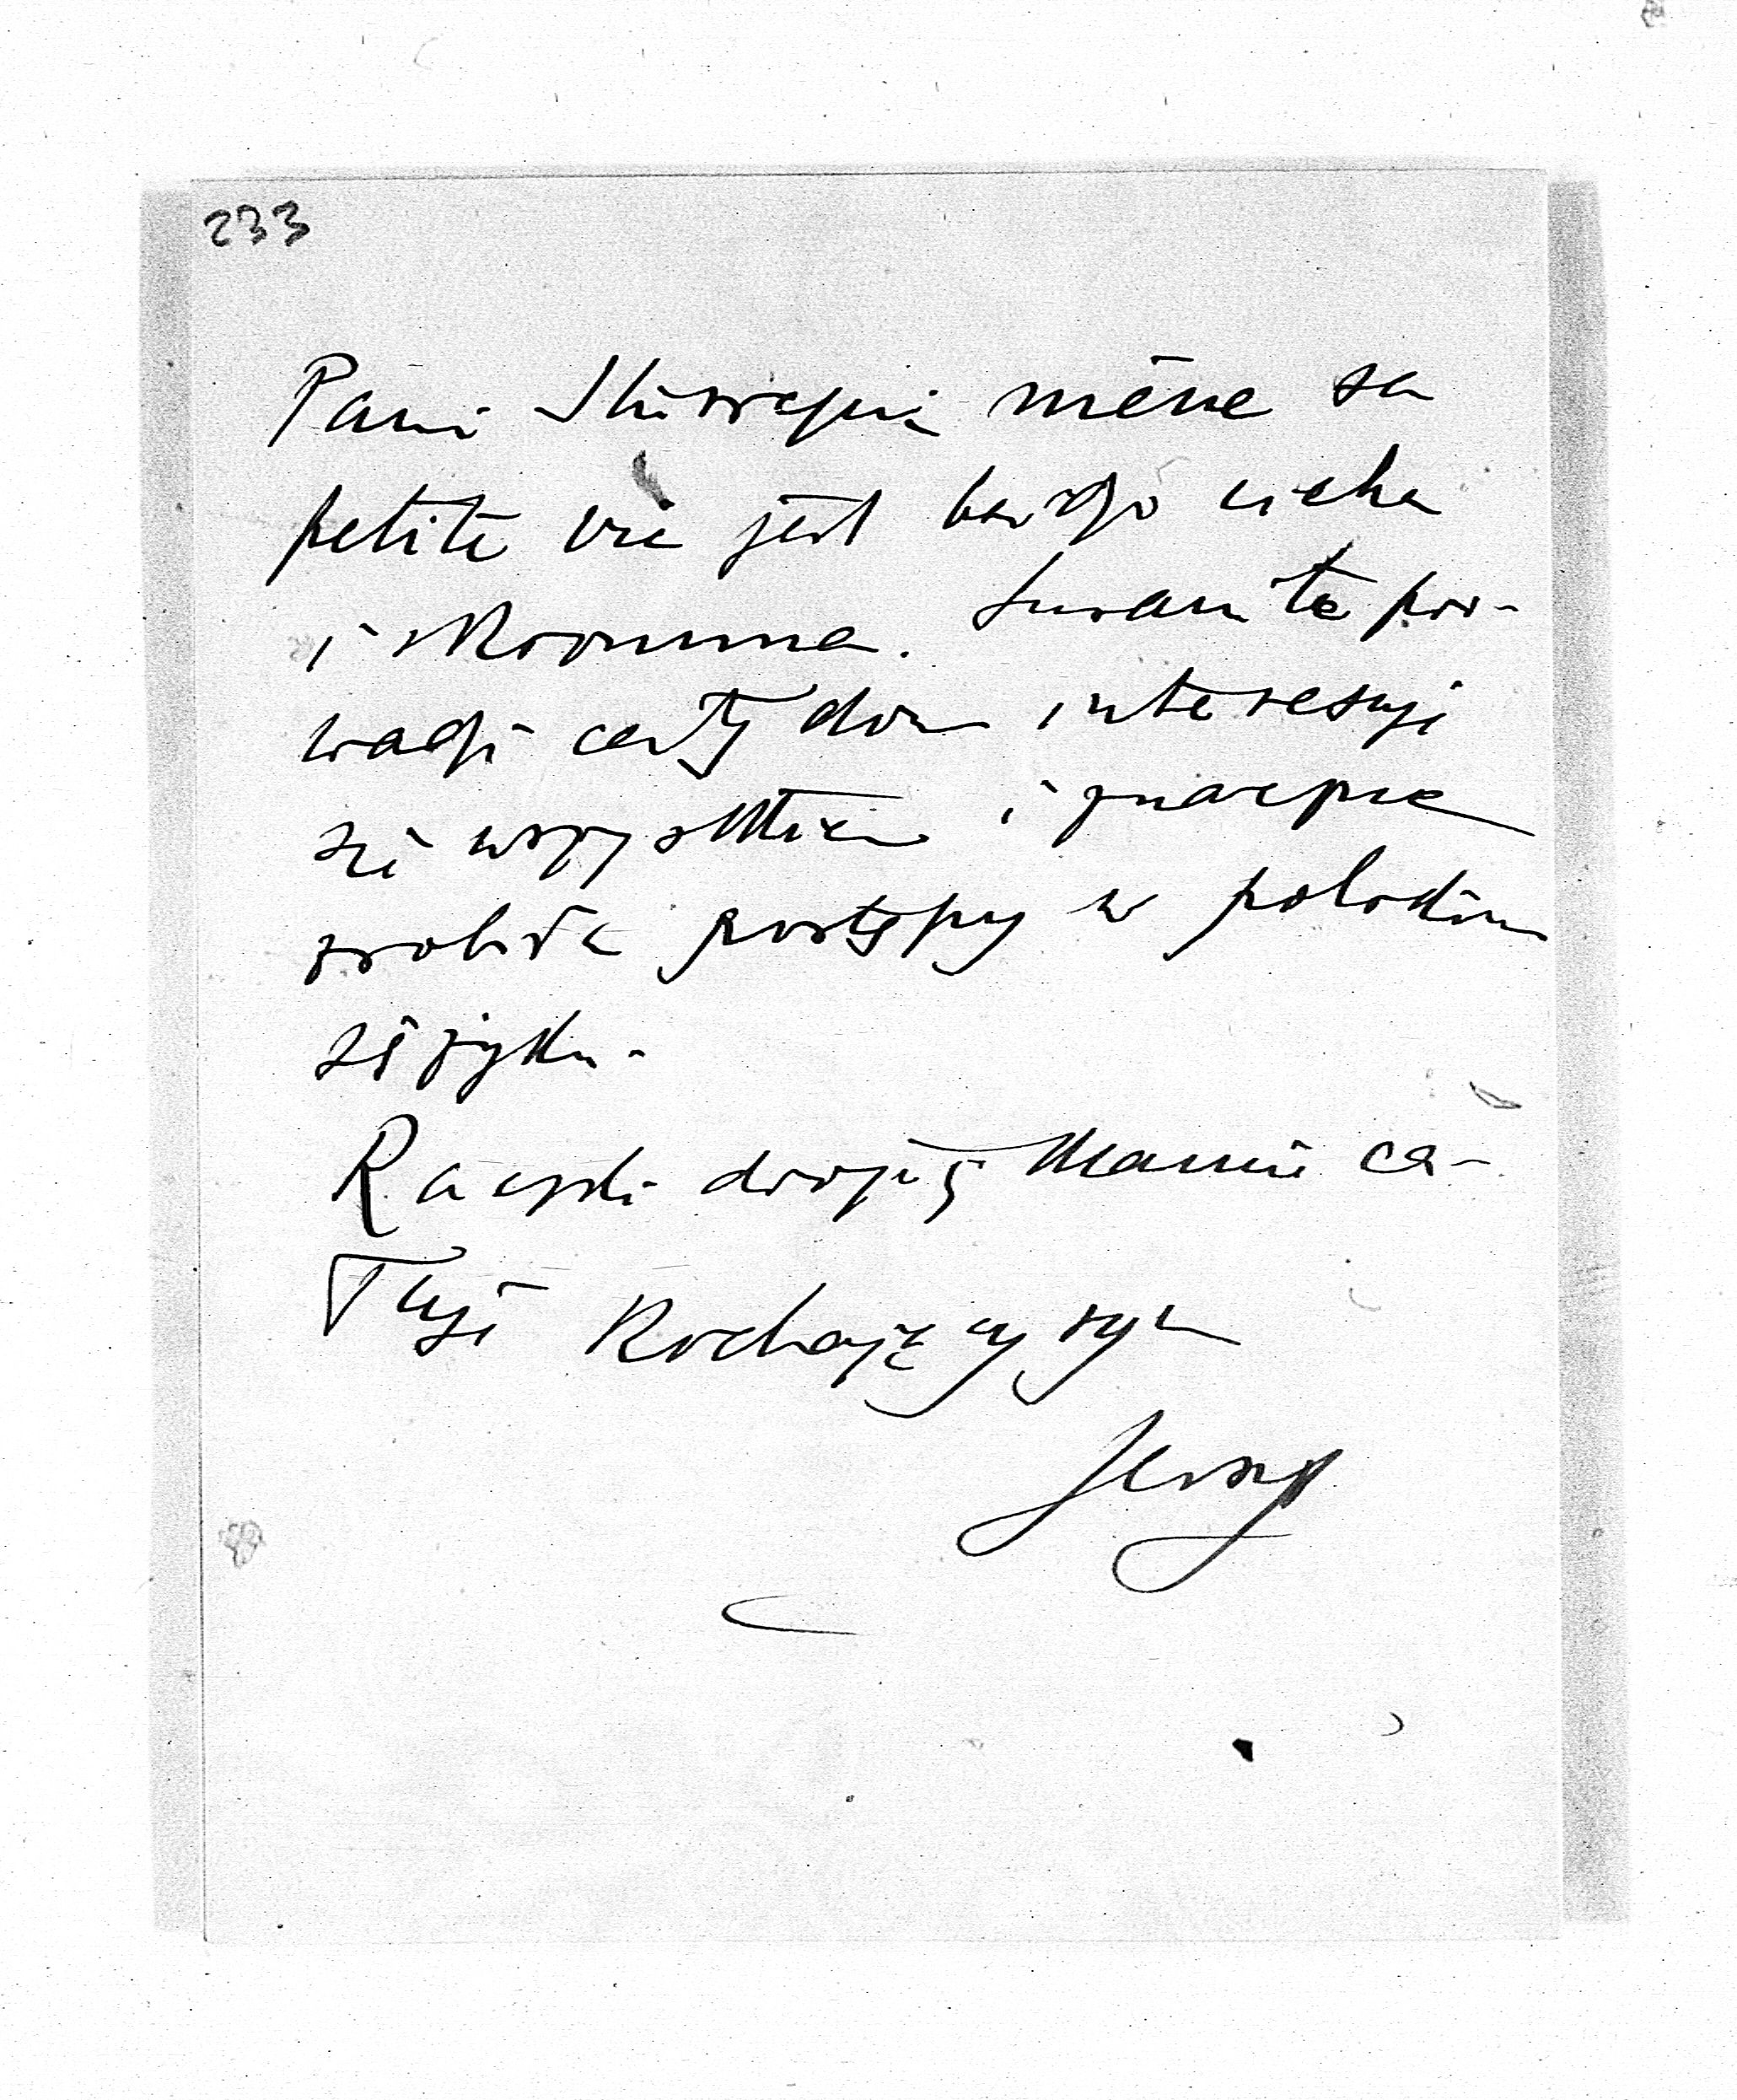 233
Pani mène sa
petite vie jest bardzo cicha
i skromna. Suzanne pro-
wadzi cały dom interesuje
się wszystkiem i znacznie
zrobiła postępy w polskim
języku.
Rączki drogiej Mamie ca-
łuję kochający syn
Jerzy